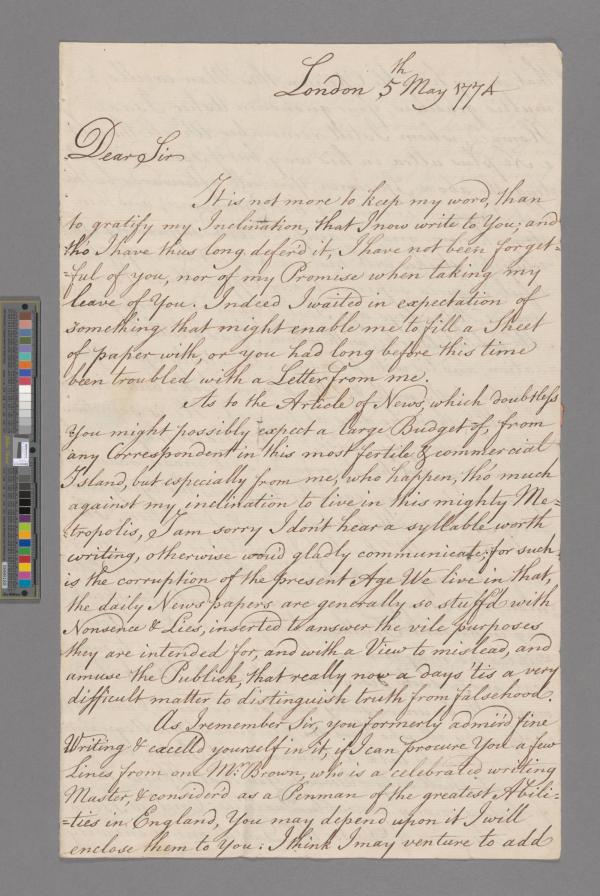 London 5th May 1774
Dear Sir
It is not more to keep my word, than
to gratify my Inclination, that I now write to You; and
tho' I have thus long defer'd it, I have not been forget=
=ful of you, nor of my Promise when taking my
leave of You. Indeed I waited in expectation of
something that might enable me to fill a Sheet
of paper with, or you had long before this time
been troubled with a Letter from me.
As to the Article of News, which doubtless
You might possibly expect a large Budget of, from
any Correspondent in this most fertile & commercial
Island, but especially from me, who happen, tho' much
against my inclination to live in this mighty Me=
=tropolis, I am sorry I don't hear a syllable worth
writing, otherwise wou'd gladly communicate; for such
is the corruption of the present Age We live in that,
the daily News papers are generally so stuff'd with
Nonsence & Lies, inserted to answer the vile purposes
they are intended for, and with a View to mislead, and
amuse the Publick, that really now a days 'tis a very
difficult matter to distinguish truth from falsehood.
As I remember Sir, you formerly admir'd fine
Writing & excell'd yourself in it, if I can procure You a few
Lines from one Mr. Brown, who is a celebrated writing
Master, & consider'd as a Penman of the greatest Abili=
=ties in England, You may depend upon it I will
enclose them to You: I think I may venture to add